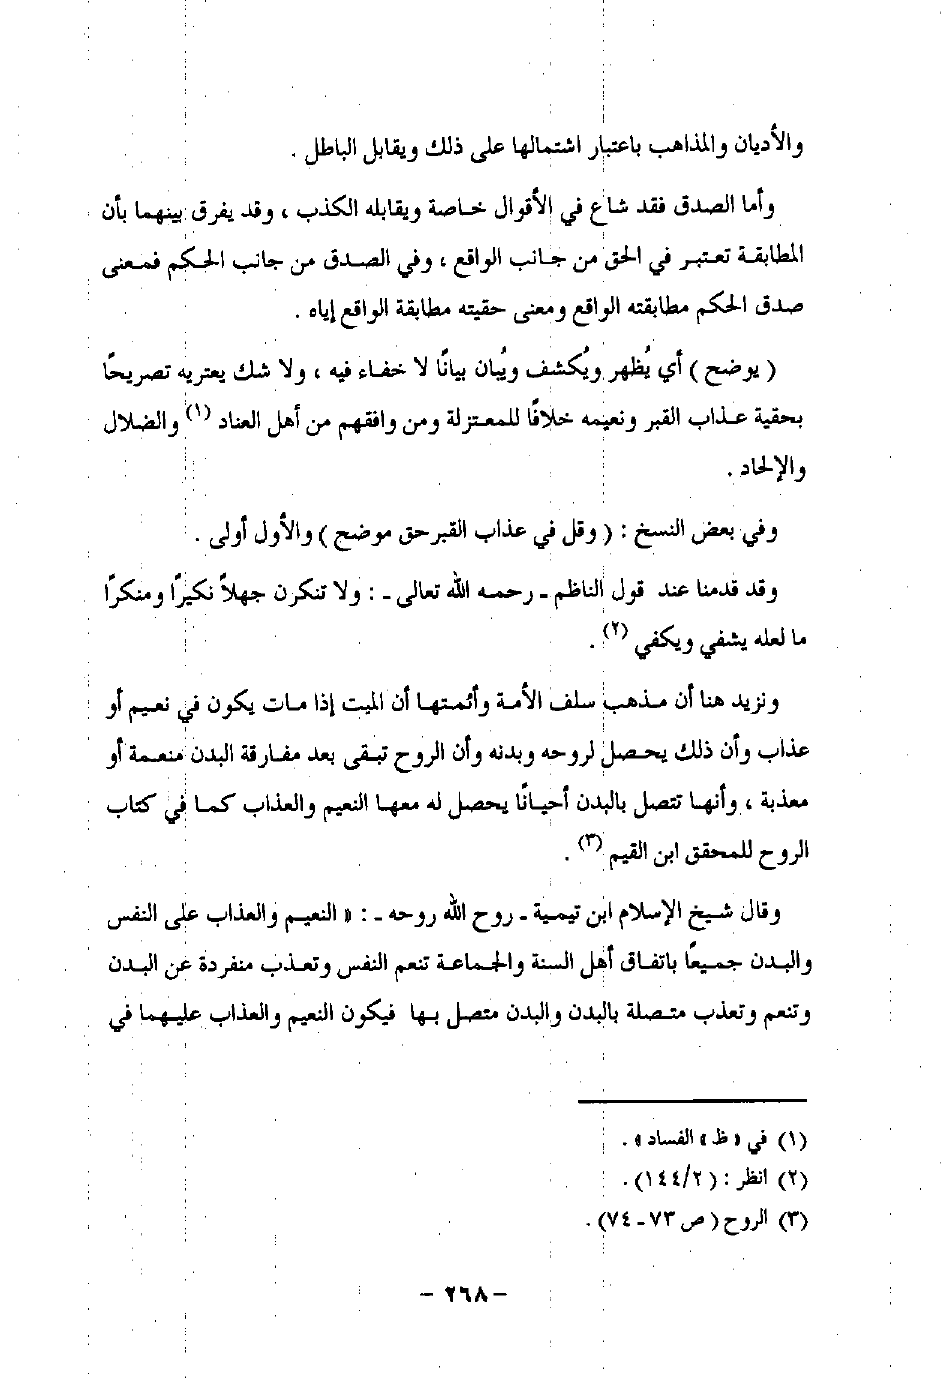 والأديان والمذاهب باعتبار اشتمالها على ذلك ويقابل الباطل .
وأما الصدق فقد شاع في الأقوال خاصة ويقابله الكذب ، وقد يفرق بينهما بأن
المطابقة تعتبر في الحق من جانب الواقع ، وفي الصدق من جانب الحكم فمعنى
صدق الحكم مطابقته الواقع ومعنى حقيته مطابقة الواقع إياه .
( يوضح ) أي يُظهر ويُكشف ويُبان بيانًا لا خفاء فيه ، ولا شك يعتريه تصريحًا
بحقية عذاب القبر ونعيمه خلافًا للمعتزلة ومن وافقهم من أهل العناد (١) والضلال
والإلحاد .
وفي بعض النسخ : ( وقل في عذاب القبر حق موضح ) والأول أولى .
وقد قدمنا عند قول الناظم ـ رحمه الله تعالى ـ : ولا تنكرن جهلاً نكيرًا ومنكرًا
ما لعله يشفي ويكفي (٢) .
ونزيد هنا أن مذهب سلف الأمة وأئمتها أن الميت إذا مات يكون في نعيم أو
عذاب وأن ذلك يحصل لروحه وبدنه وأن الروح تبقى بعد مفارقة البدن منعمة أو
معذبة ، وأنها تتصل بالبدن أحيانًا يحصل له معها النعيم والعذاب كما في كتاب
الروح للمحقق ابن القيم (٣) .
وقال شيخ الإسلام ابن تيمية ـ روح الله روحه ـ : « النعيم والعذاب على النفس
والبدن جميعًا باتفاق أهل السنة والجماعة تنعم النفس وتعذب منفردة عن البدن
وتنعم وتعذب متصلة بالبدن والبدن متصل بها فيكون النعيم والعذاب عليهما في
(١) في « ظ » الفساد » .
(٢) انظر : ( ١٤٤/٢) .
(٣) الروح ( ص ٧٣ ـ ٧٤) .
– ٢٦٨ –